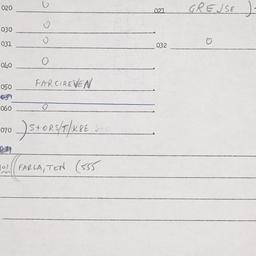 020 0 021 GREJSE )
030 0
031 0 032 0
040 0
050 FARCIREVEN
060 0
070 )STORS/T/KBE
101 (FARLA, TEN (555